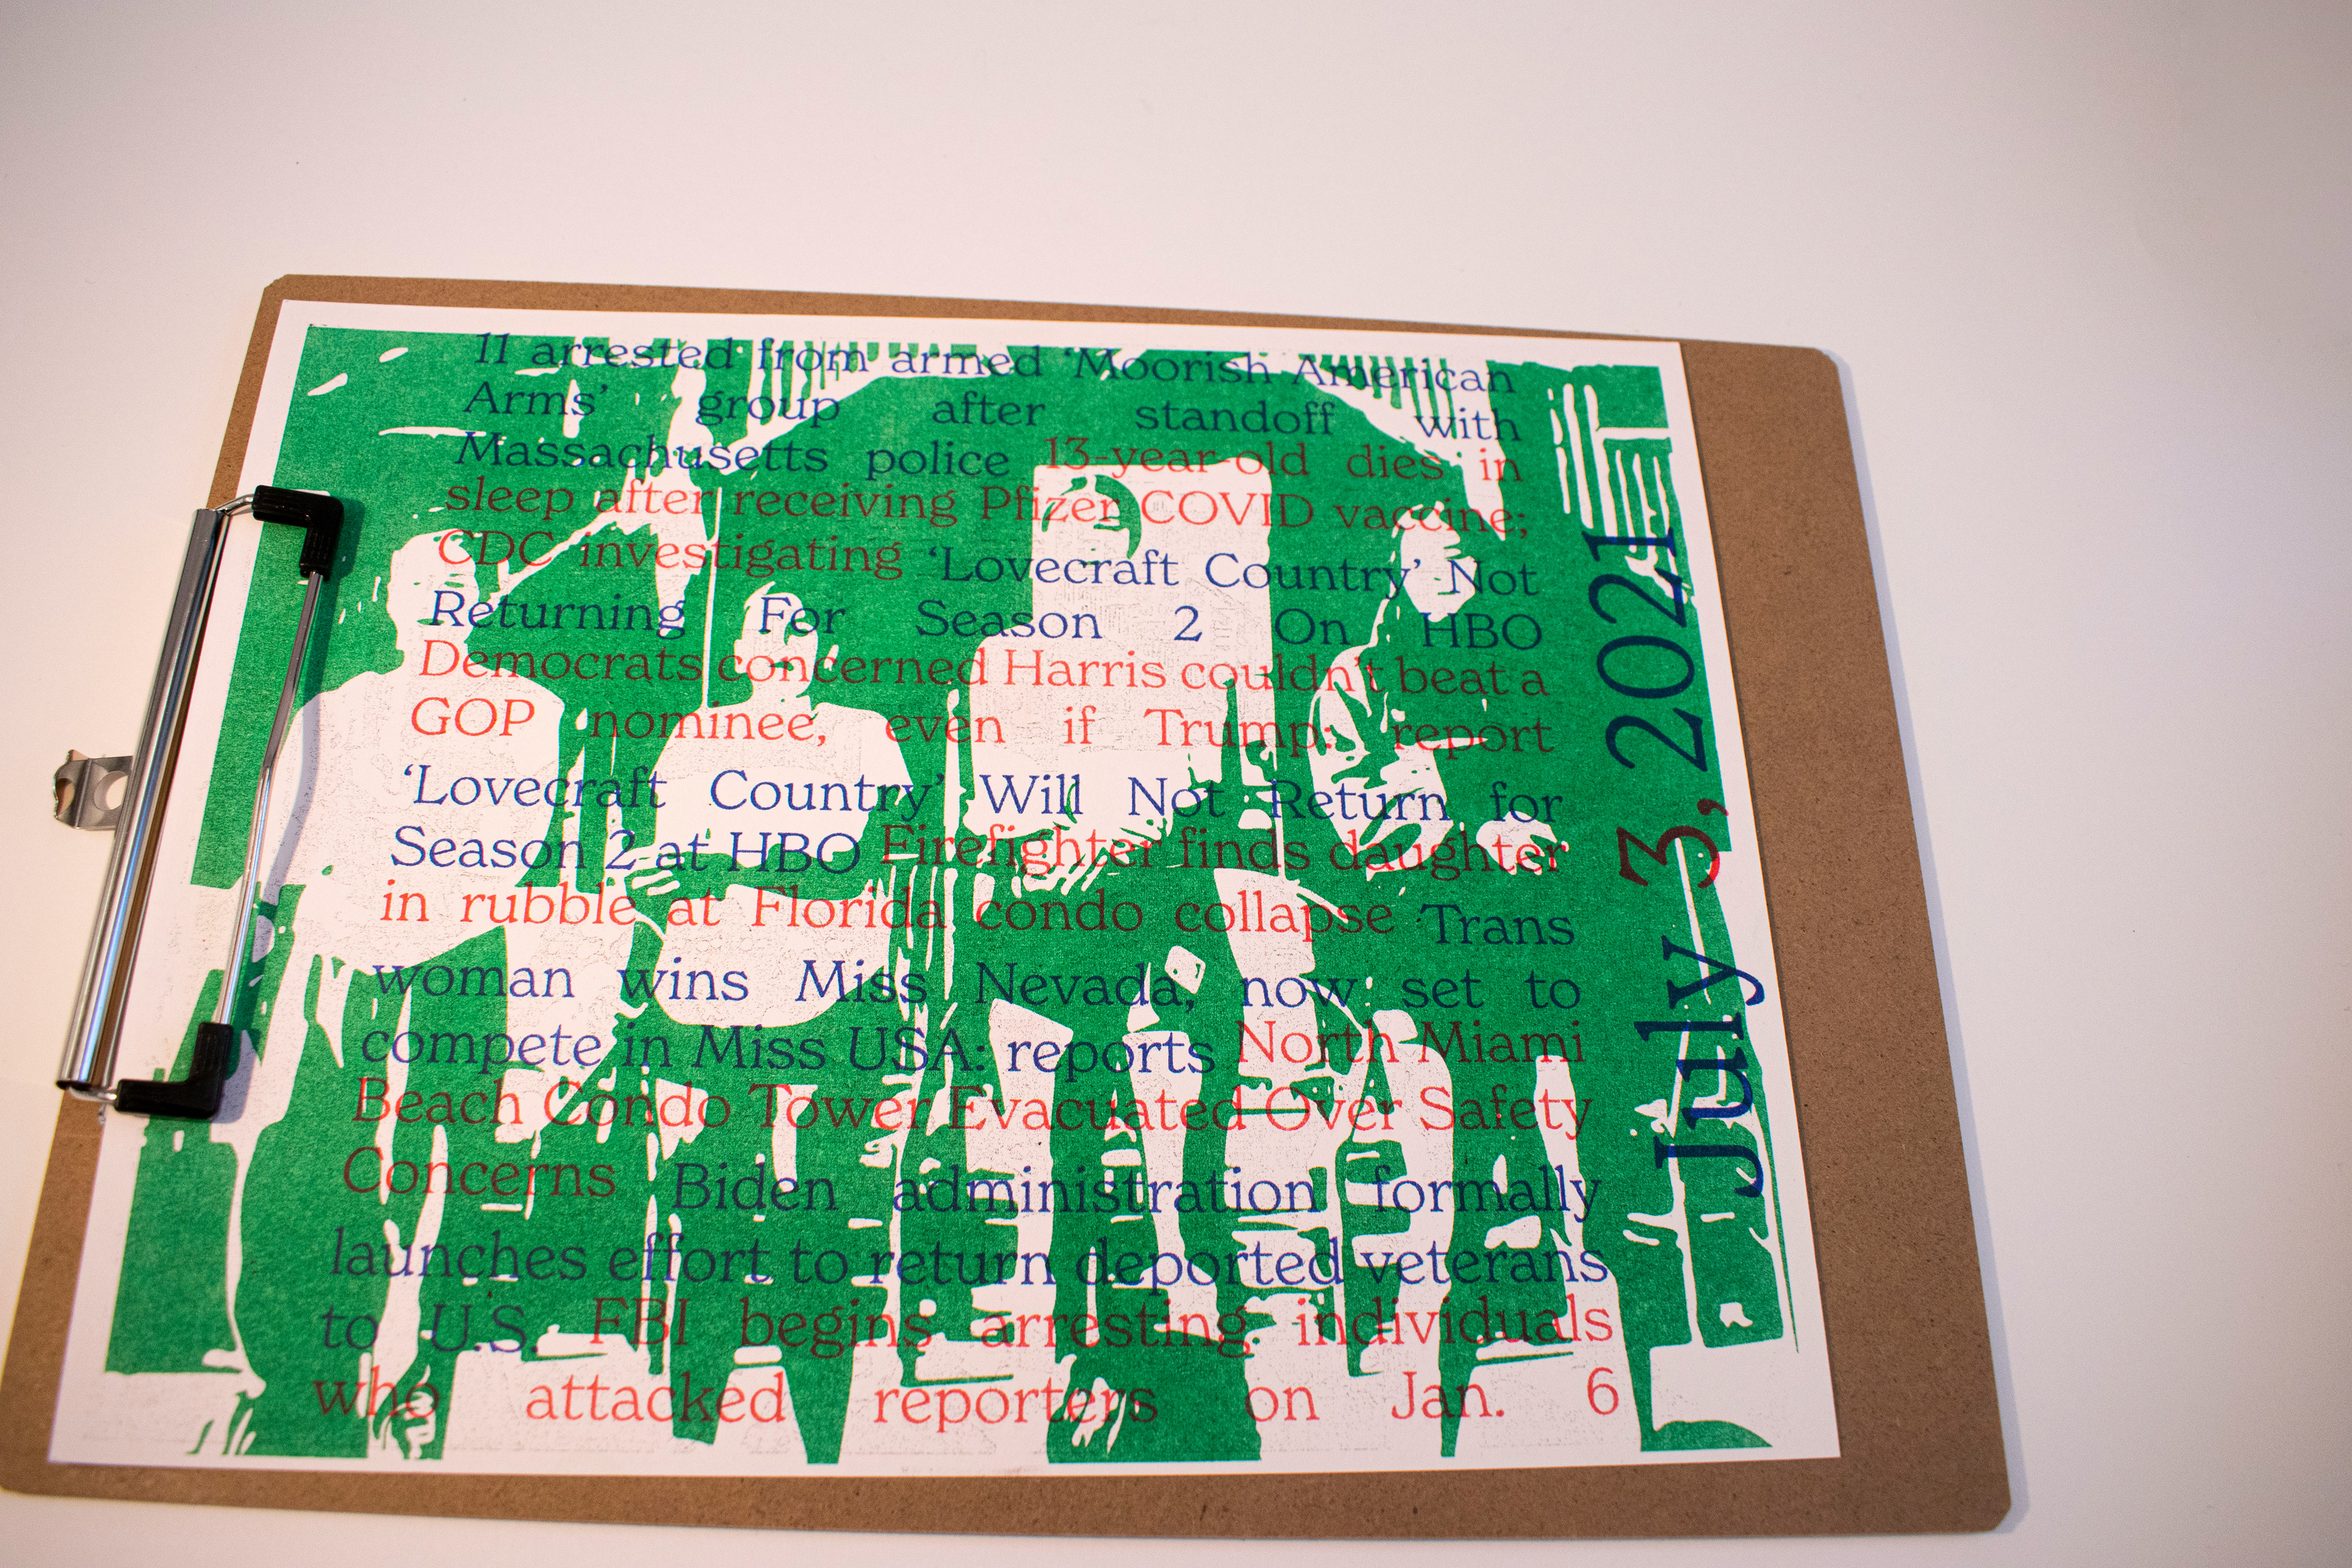 11 arrested from armed ‘Moorish American
Arms’ group after standoff with
Massachusetts police 13-year-old dies in
sleep after receiving Pfizer COVID vaccine;
CDC investigating ‘Lovecraft Country’ Not
Returning For Season 2 On HBO
Democrats concerned Harris couldn’t beat a
GOP nominee, even if Trump: report
‘Lovecraft Country’ Will Not Return for
Season 2 at HBO Firefighter finds daughter
in rubble at Florida condo collapse Trans
woman wins Miss Nevada, now set to
compete in Miss USA: reports North Miami
Beach Condo Tower Evacuated Over Safety
Concerns Biden administration formally
launches effort to return deported veterans
to U.S. FBI begins arresting individuals
who attacked reporters on Jan. 6
July 3, 2021